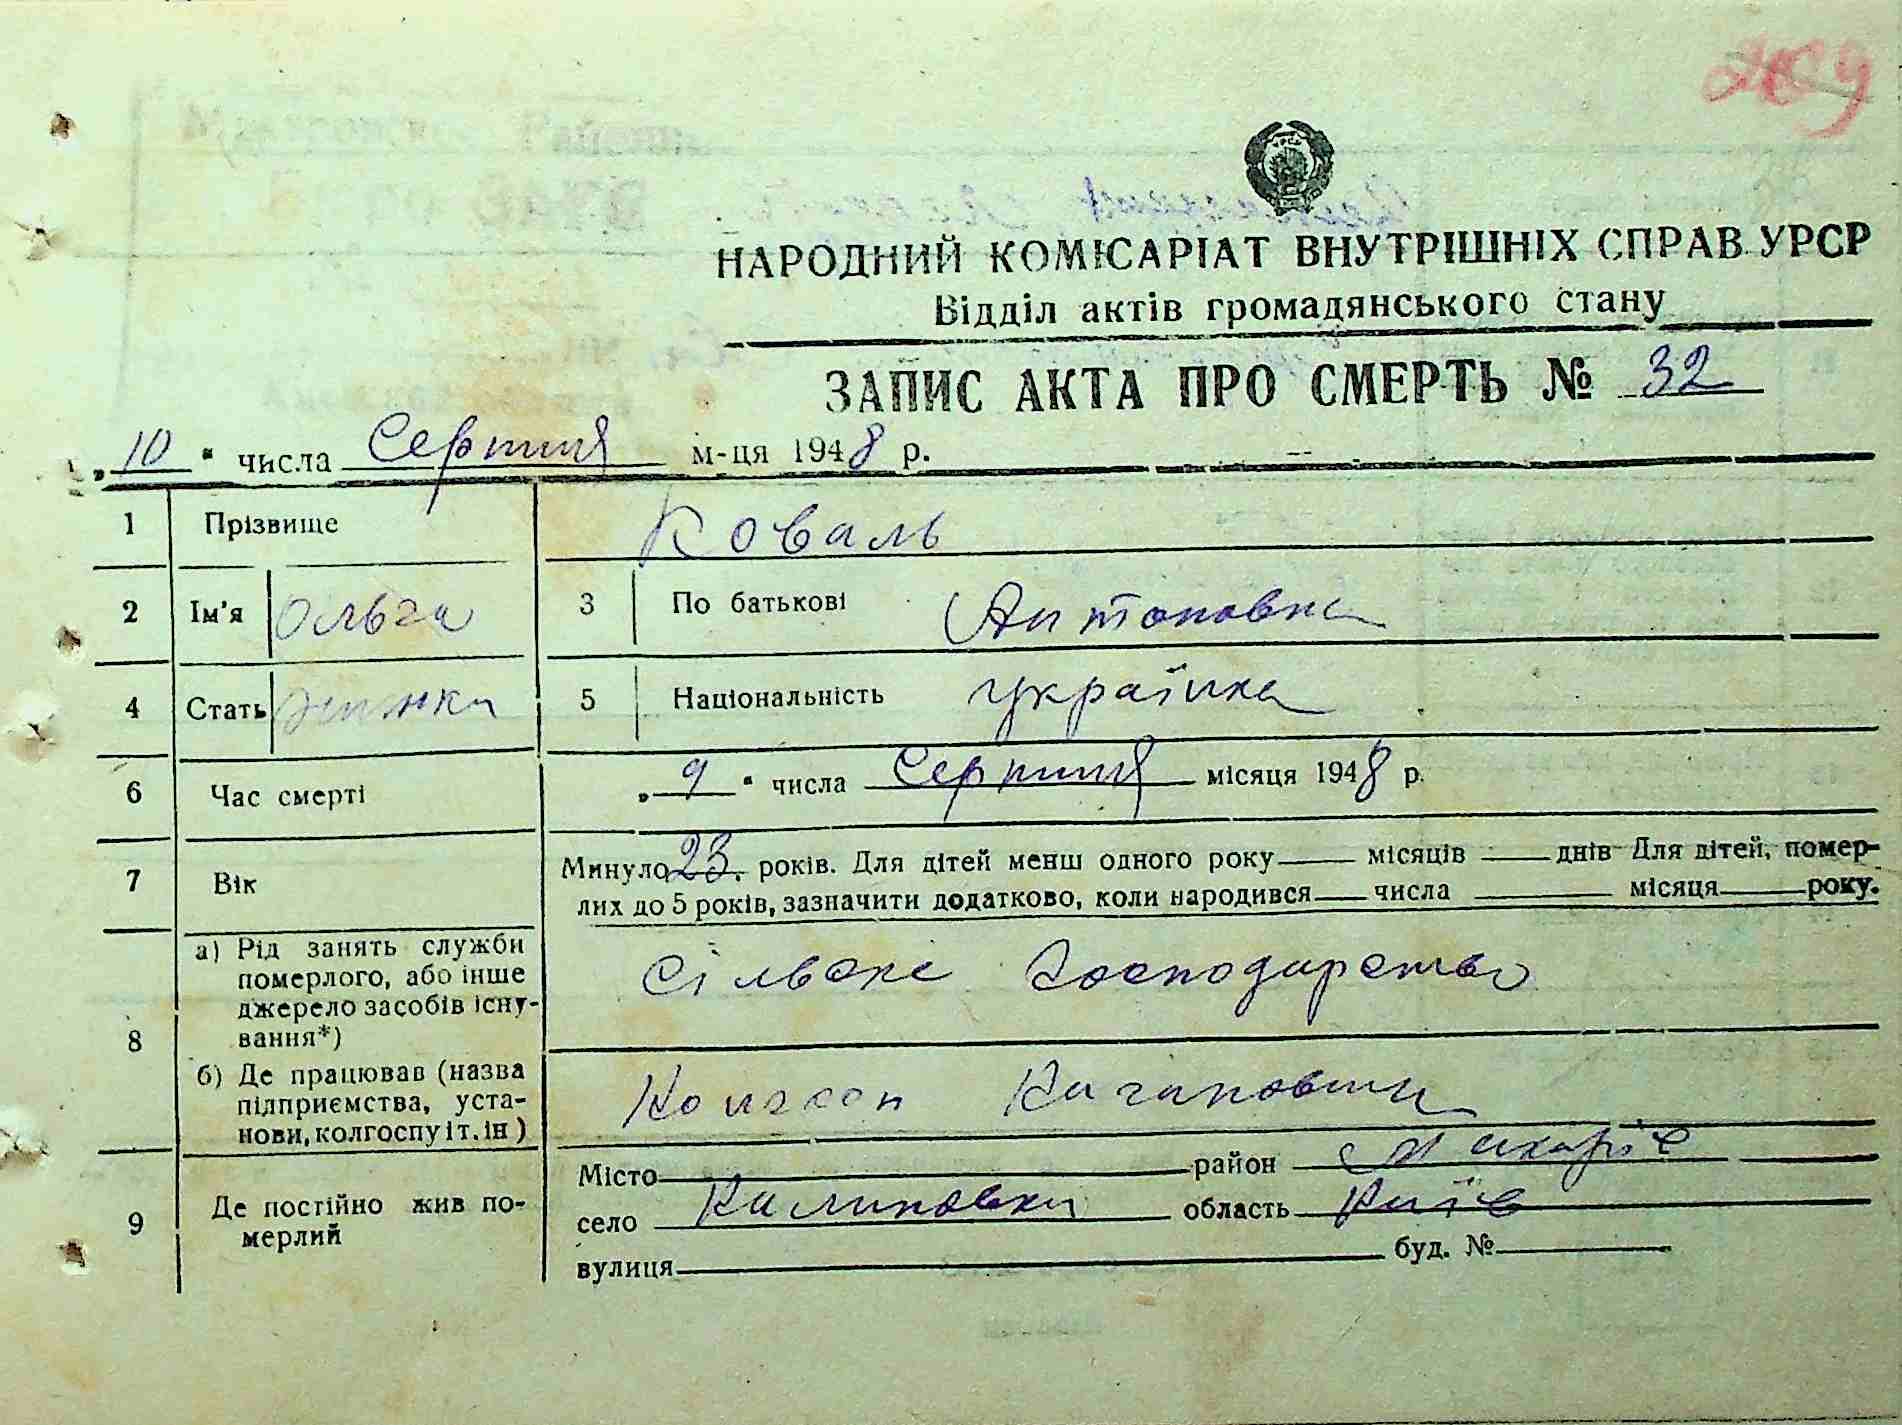 УРСР
НАРОДНИЙ КОМІСАРІАТ ВНУТРІШНІХ СПРАВ УРСР
Відділ актів громадянського стану
ЗАПИС АКТА ПРО СМЕРТЬ № 32
„10“ числа Серпня м-ця 1948 р.
1 Прізвище Коваль
2 Ім'я Ольга 3 По батькові Антоновна
4 Стать жінка 5 Національність українка
6 Час смерті „9“ числа Серпня місяця 1948 р.
7 Вік Минуло 23, років. Для дітей менш одного року місяців днів Для дітей, помер-
лих до 5 років, зазначити додатково, коли народився числа місяця року.
8 а) Рід занять служби
померлого, або інше
джерело засобів існу-
вання*)
Сільске Господарство
б) Де працював (назва
підприємства, уста-
нови, колгоспу і т. ін)
Колгосп Кагановича
9 Де постійно жив по-
мерлий
Місто район Макарів
село Калиновка область Київ
вулиця буд. №